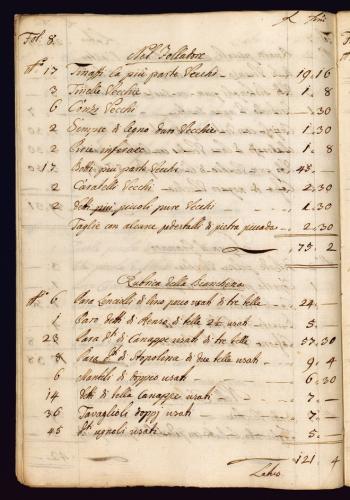 Fol. 8.
Nel Follatore
N.º 17 Tinazzi la più parte Vecchi 19.16
3 Tinelle Vecchie 1.8
6 Conzi Vecchi .30
2 di legno Vecchie 1.30
2 inferate 1.8
17 Botti più parte Vecchi 48.
2 Caratelli Vecchi 2.30
2 detti più piccoli pure Vecchi 1.30
con alcune pedestalli di pietra piccada 2.30
73.2
Rubrica della Biancheria
N.º 6 Para Lenzuoli di lino poco usati di tre telle 24.
1 Paro detti di Renso di telle 2½ usati 5.
23 Para d.i di Canappe usati di tre telle 57.30
8 Para d.i di Stopolina di due telle usati 9.4
6 Mantili di doppio usati 6.30
14 detti di tella Canappe usati 7.
36 Tavaglioli doppj usati 7.
45 d.i ugnoli usati 5.
121 4